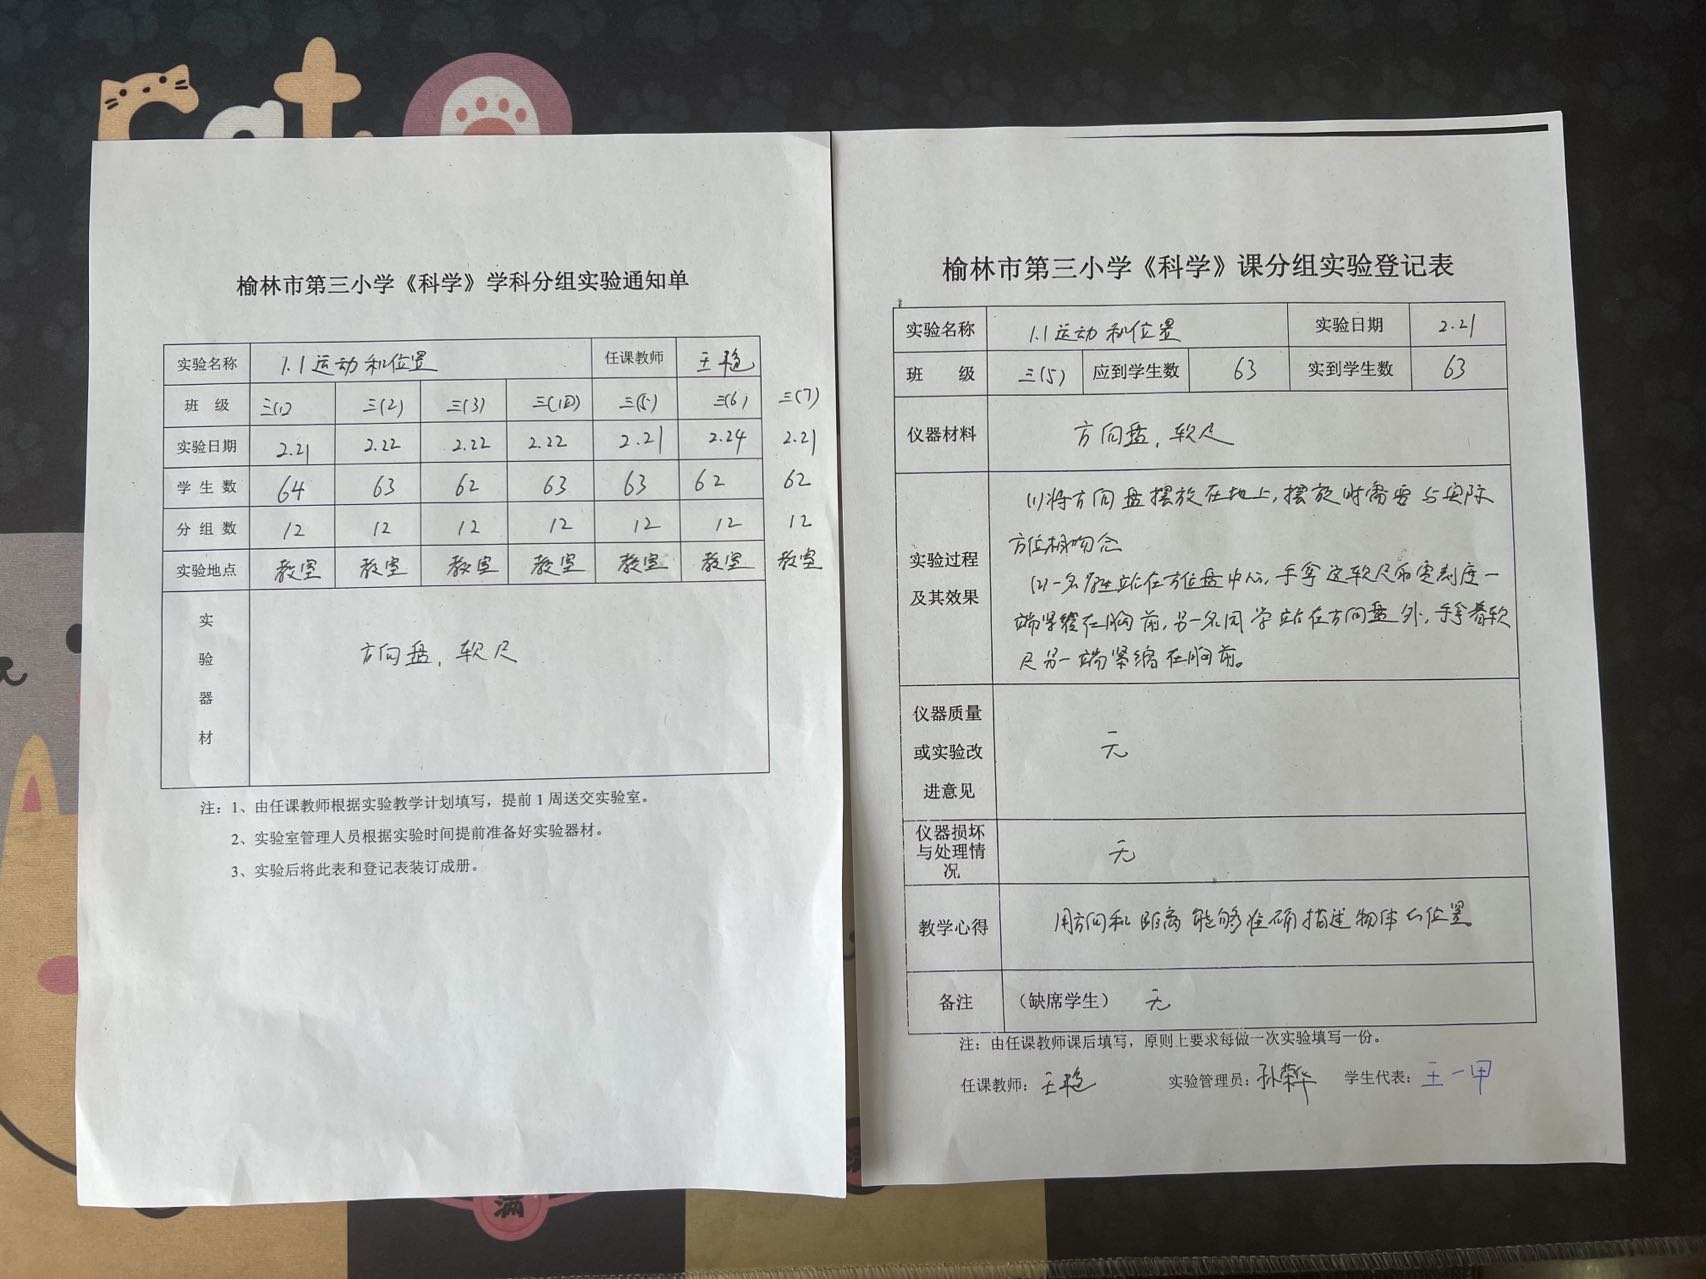 Cat
榆林市第三小学《科学》学科分组实验通知单
实验名称 1.1运动和位置 任课教师 王稳
班 级 三(1) 三(2) 三(3) 三(四) 三(5) 三(6) 三(7)
实验日期 2.21 2.22 2.22 2.22 2.21 2.24 2.21
学 生 数 64 63 62 63 63 62 62
分 组 数 12 12 12 12 12 12 12
实验地点 教室 教室 教室 教室 教室 教室 教室
实
验
器
材
方向盘，软尺
注：1、由任课教师根据实验教学计划填写，提前1周送交实验室。
2、实验室管理人员根据实验时间提前准备好实验器材。
3、实验后将此表和登记表装订成册。
满
榆林市第三小学《科学》课分组实验登记表
实验名称 1.1运动和位置 实验日期 2.21
班 级 三(5) 应到学生数 63 实到学生数 63
仪器材料 方向盘，软尺
实验过程
及其效果
(1)将方向盘摆放在地上，摆放时需要与实际
方位相吻合
(2)一名学生站在方位盘中心，手拿这软尺的零刻度一
端紧缩在胸前，另一名同学站在方向盘外，手拿着软
尺另一端紧缩在胸前。
仪器质量
或实验改
进意见
无
仪器损坏
与处理情
况
无
教学心得 用方向和距离能够准确描述物体的位置
备注 （缺席学生） 无
注：由任课教师课后填写，原则上要求每做一次实验填写一份。
任课教师：王稳 实验管理员：孙荣华 学生代表：王一甲